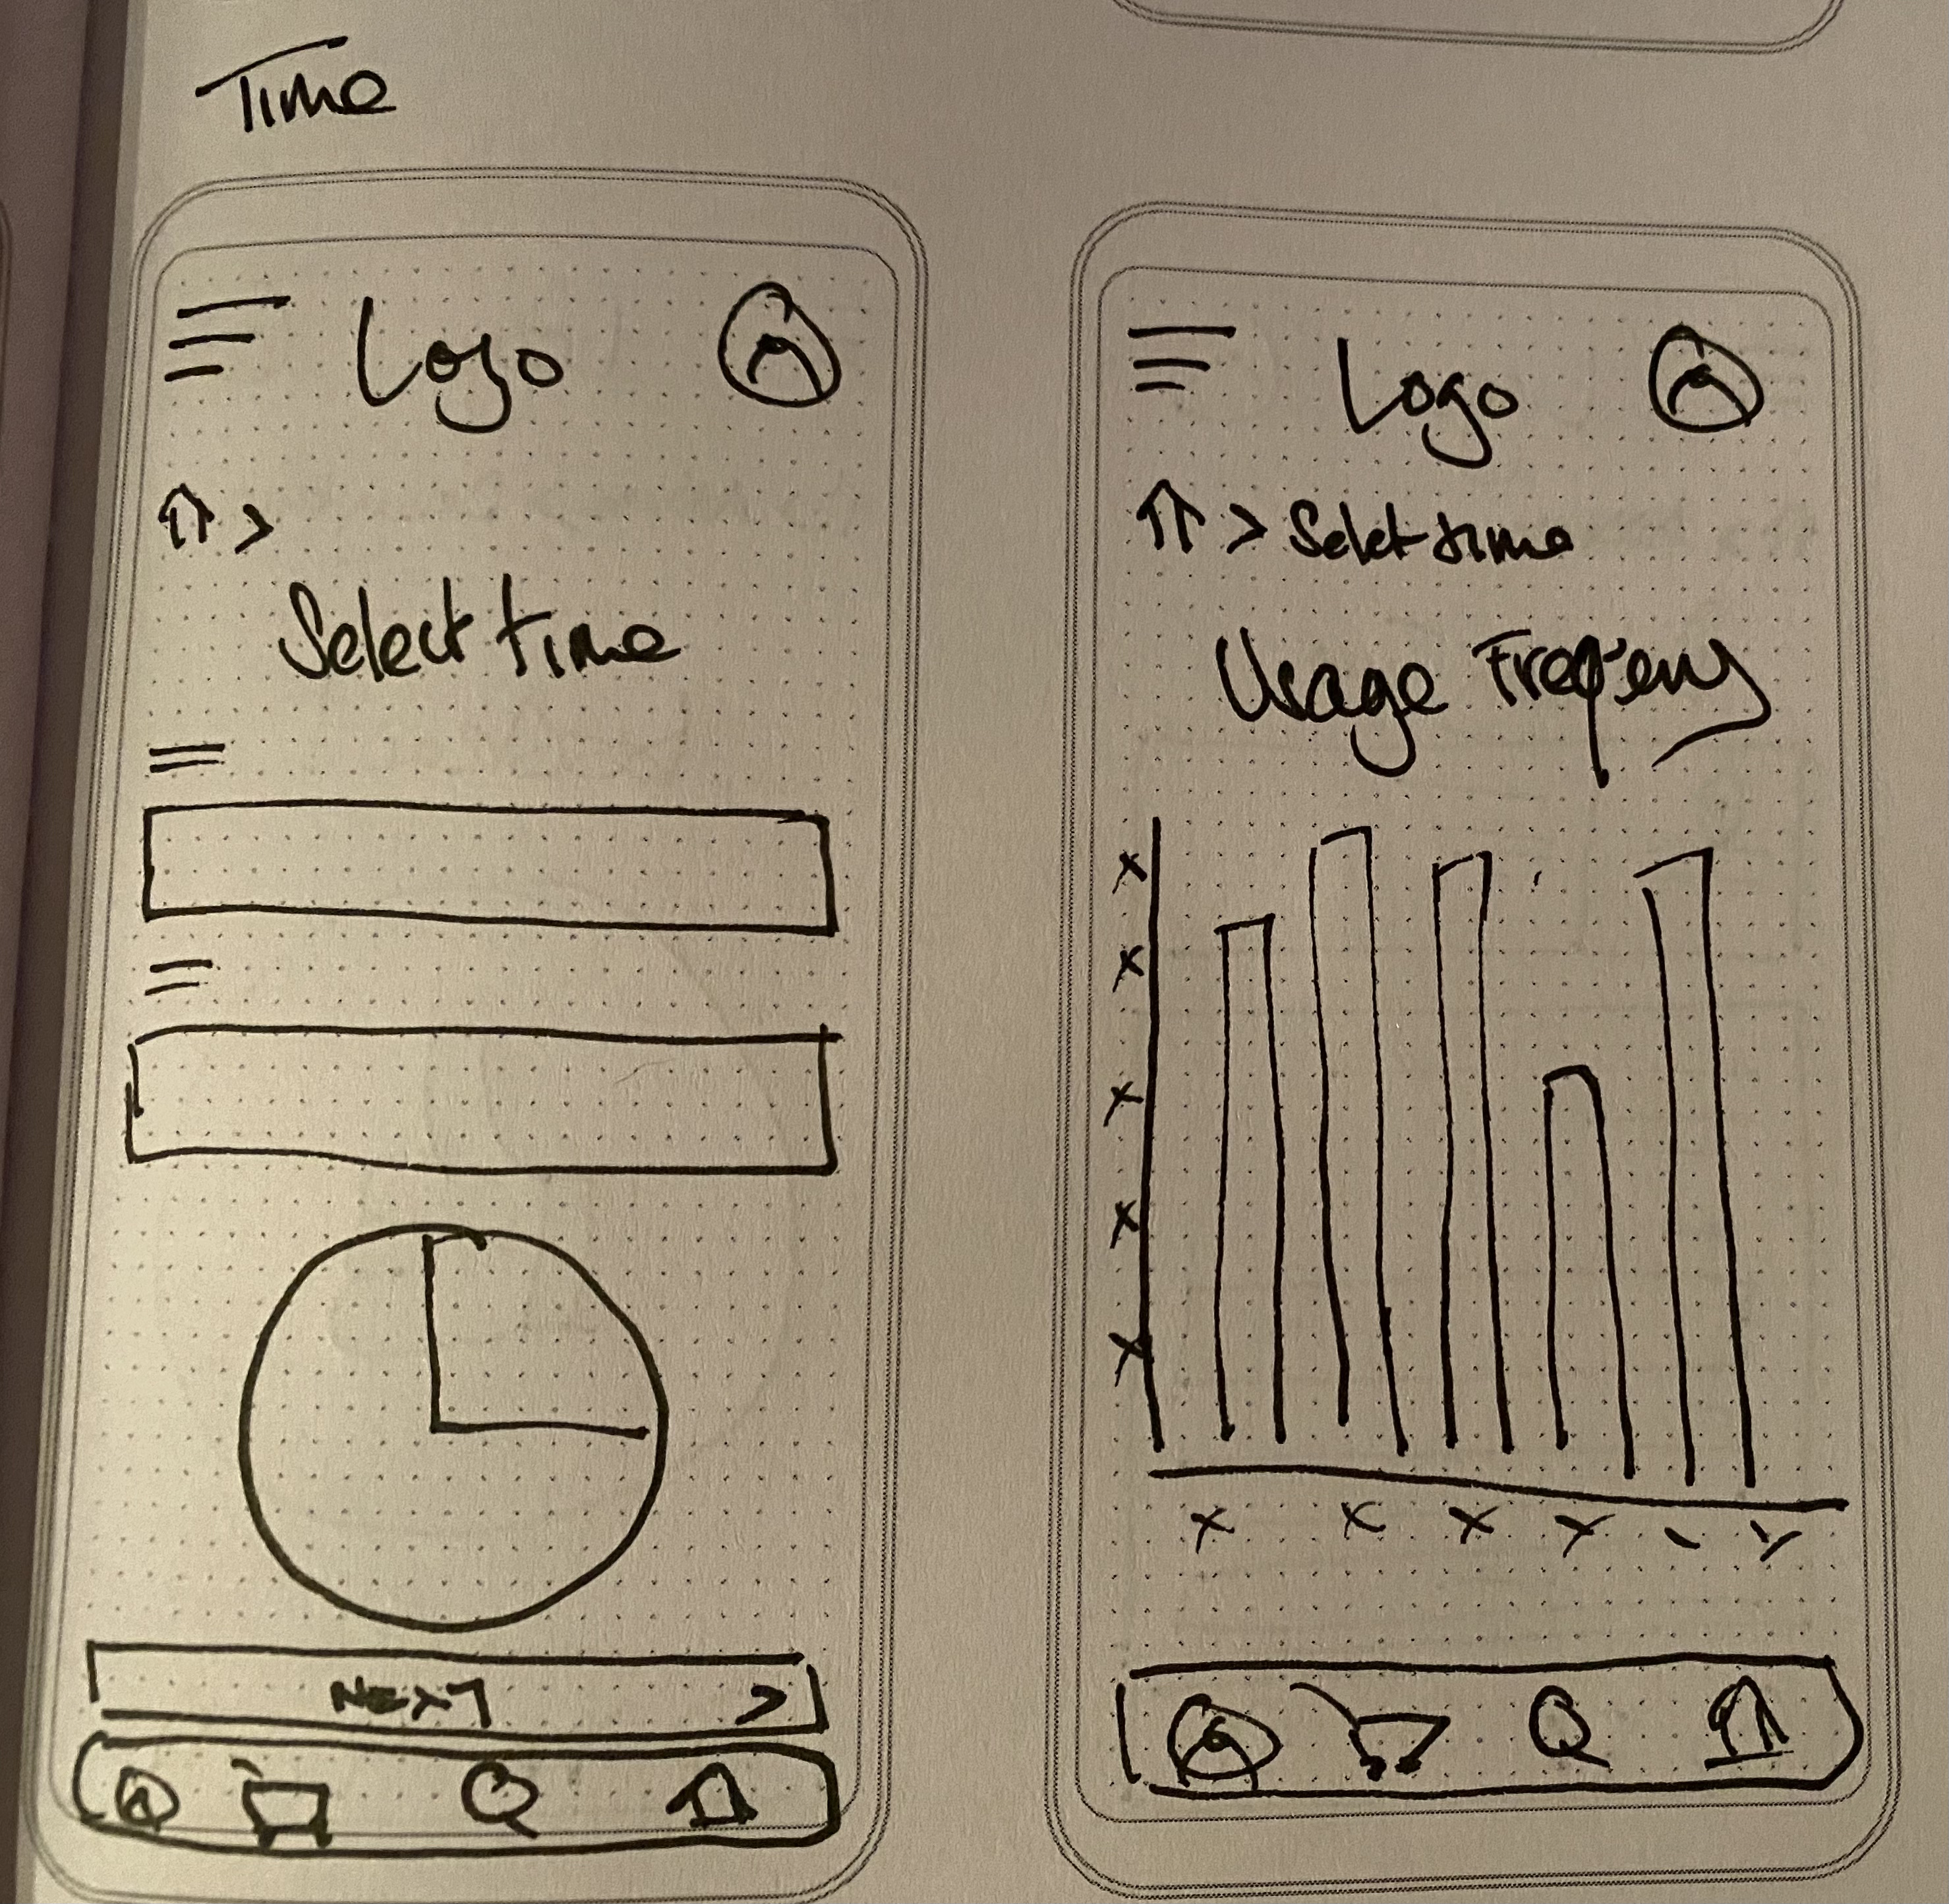 Time
Logo
>
Select time
NEXT >
Logo
> Select time
Usage Freqency
x
x
x
x
x
x x x x